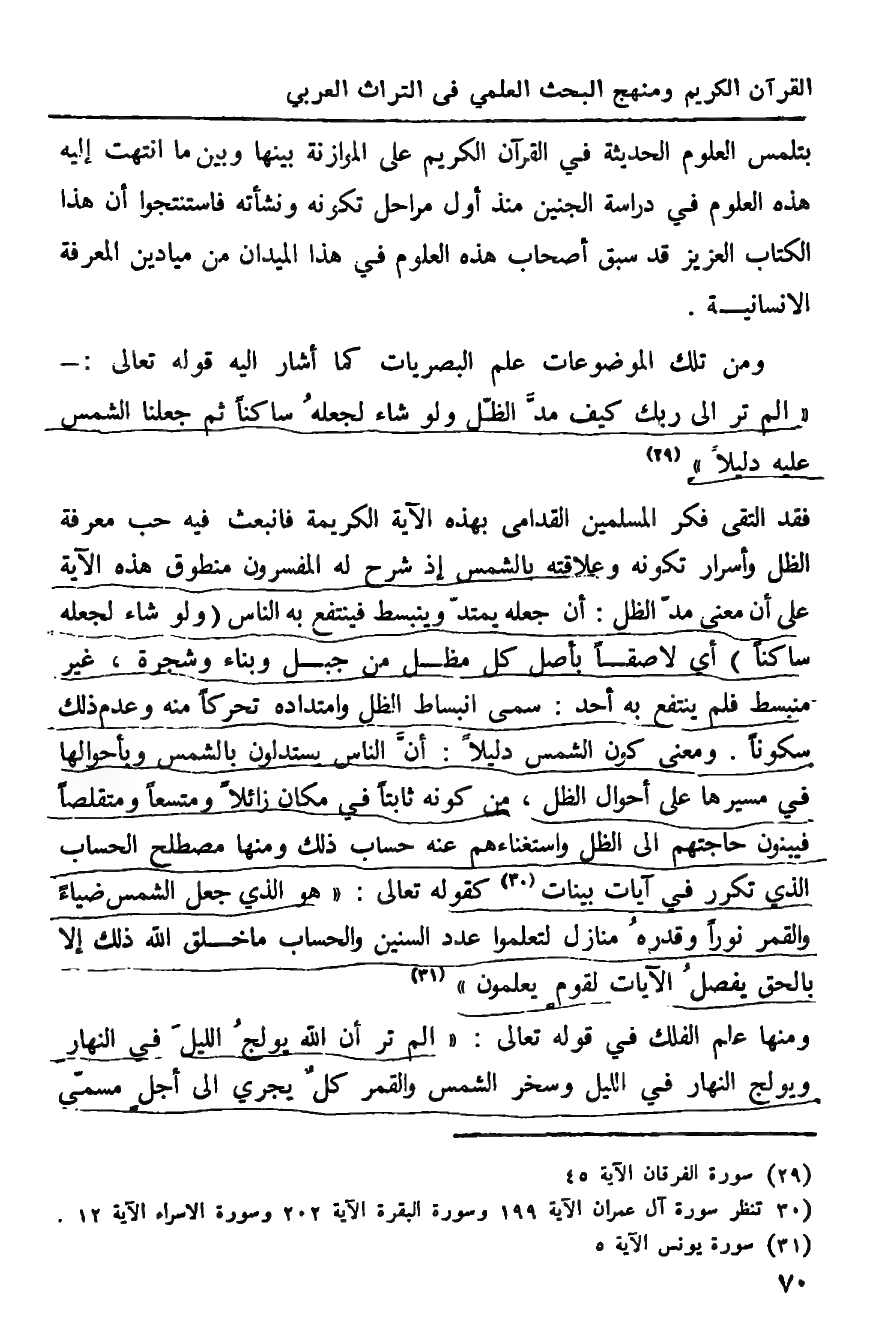 القرآن الكريم ومنهج البحث العلمي في التراث العربي
بتلمس العلوم الحديثة في القرآن الكريم على الموازنة بينها وبين ما انتهت إليه
هذه العلوم في دراسة الجنين منذ أول مراحل تكونه ونشأته فاستنتجوا أن هذا
الكتاب العزيز قد سبق أصحاب هذه العلوم في هذا الميدان من ميادين المعرفة
الانسانيـــة .
ومن تلك الموضوعات علم البصريات كما أشار اليه قوله تعالى :—
« الم تر الى ربك كيف مدَّ الظلّ ولو شاء لجعلهُ ساكناً ثم جعلنا الشمس
عليه دليلاً » (٢٩)
فقد التقى فكر المسلمين القدامى بهذه الآية الكريمة فانبعث فيه حب معرفة
الظل وأسرار تكونه وعلاقته بالشمس إذ شرح له المفسرون منطوق هذه الآية
على أن معنى مدّ الظل : أن جعله يمتدّ وينبسط فينتفع به الناس (ولو شاء لجعله
ساكناً ) أي لاصقـــاً بأصل كل مظـــل من جبـــل وبناء وشجرة ، غير
منبسط فلم ينتفع به أحد : سمى انبساط الظل وامتداده تحركاً منه وعدم ذلك
سكوناً . ومعنى كون الشمس دليلاً : أنَّ الناس يستدلون بالشمس وبأحوالها
في مسيرها على أحوال الظل ، من كونه ثابتاً في مكان زائلاً ومتسعاً ومتقلصاً
فيبنون حاجتهم الى الظل واستغناءهم عنه حساب ذلك ومنها مصطلح الحساب
الذي تكرر في آيات بينات (٣٠) كقوله تعالى : « هو الذي جعل الشمس ضياءً
والقمر نوراً وقدرهُ منازل لتعلموا عدد السنين والحساب ماخـــلق الله ذلك إلا
بالحق يفصلُ الآيات لقومٍ يعلمون » (٣١)
ومنها علم الفلك في قوله تعالى : « الم تر أن الله يولجُ الليلَ في النهار
ويولج النهار في الليل وسخر الشمس والقمر كلٌ يجري الى أجلٍ مسمّى
(٢٩) سورة الفرقان الآية ٤٥
(٣٠ تنظر سورة آل عمران الآية ١٩٩ وسورة البقرة الآية ٢٠٢ وسورة الاسراء الآية ١٢ .
(٣١) سورة يونس الآية ٥
٧٠